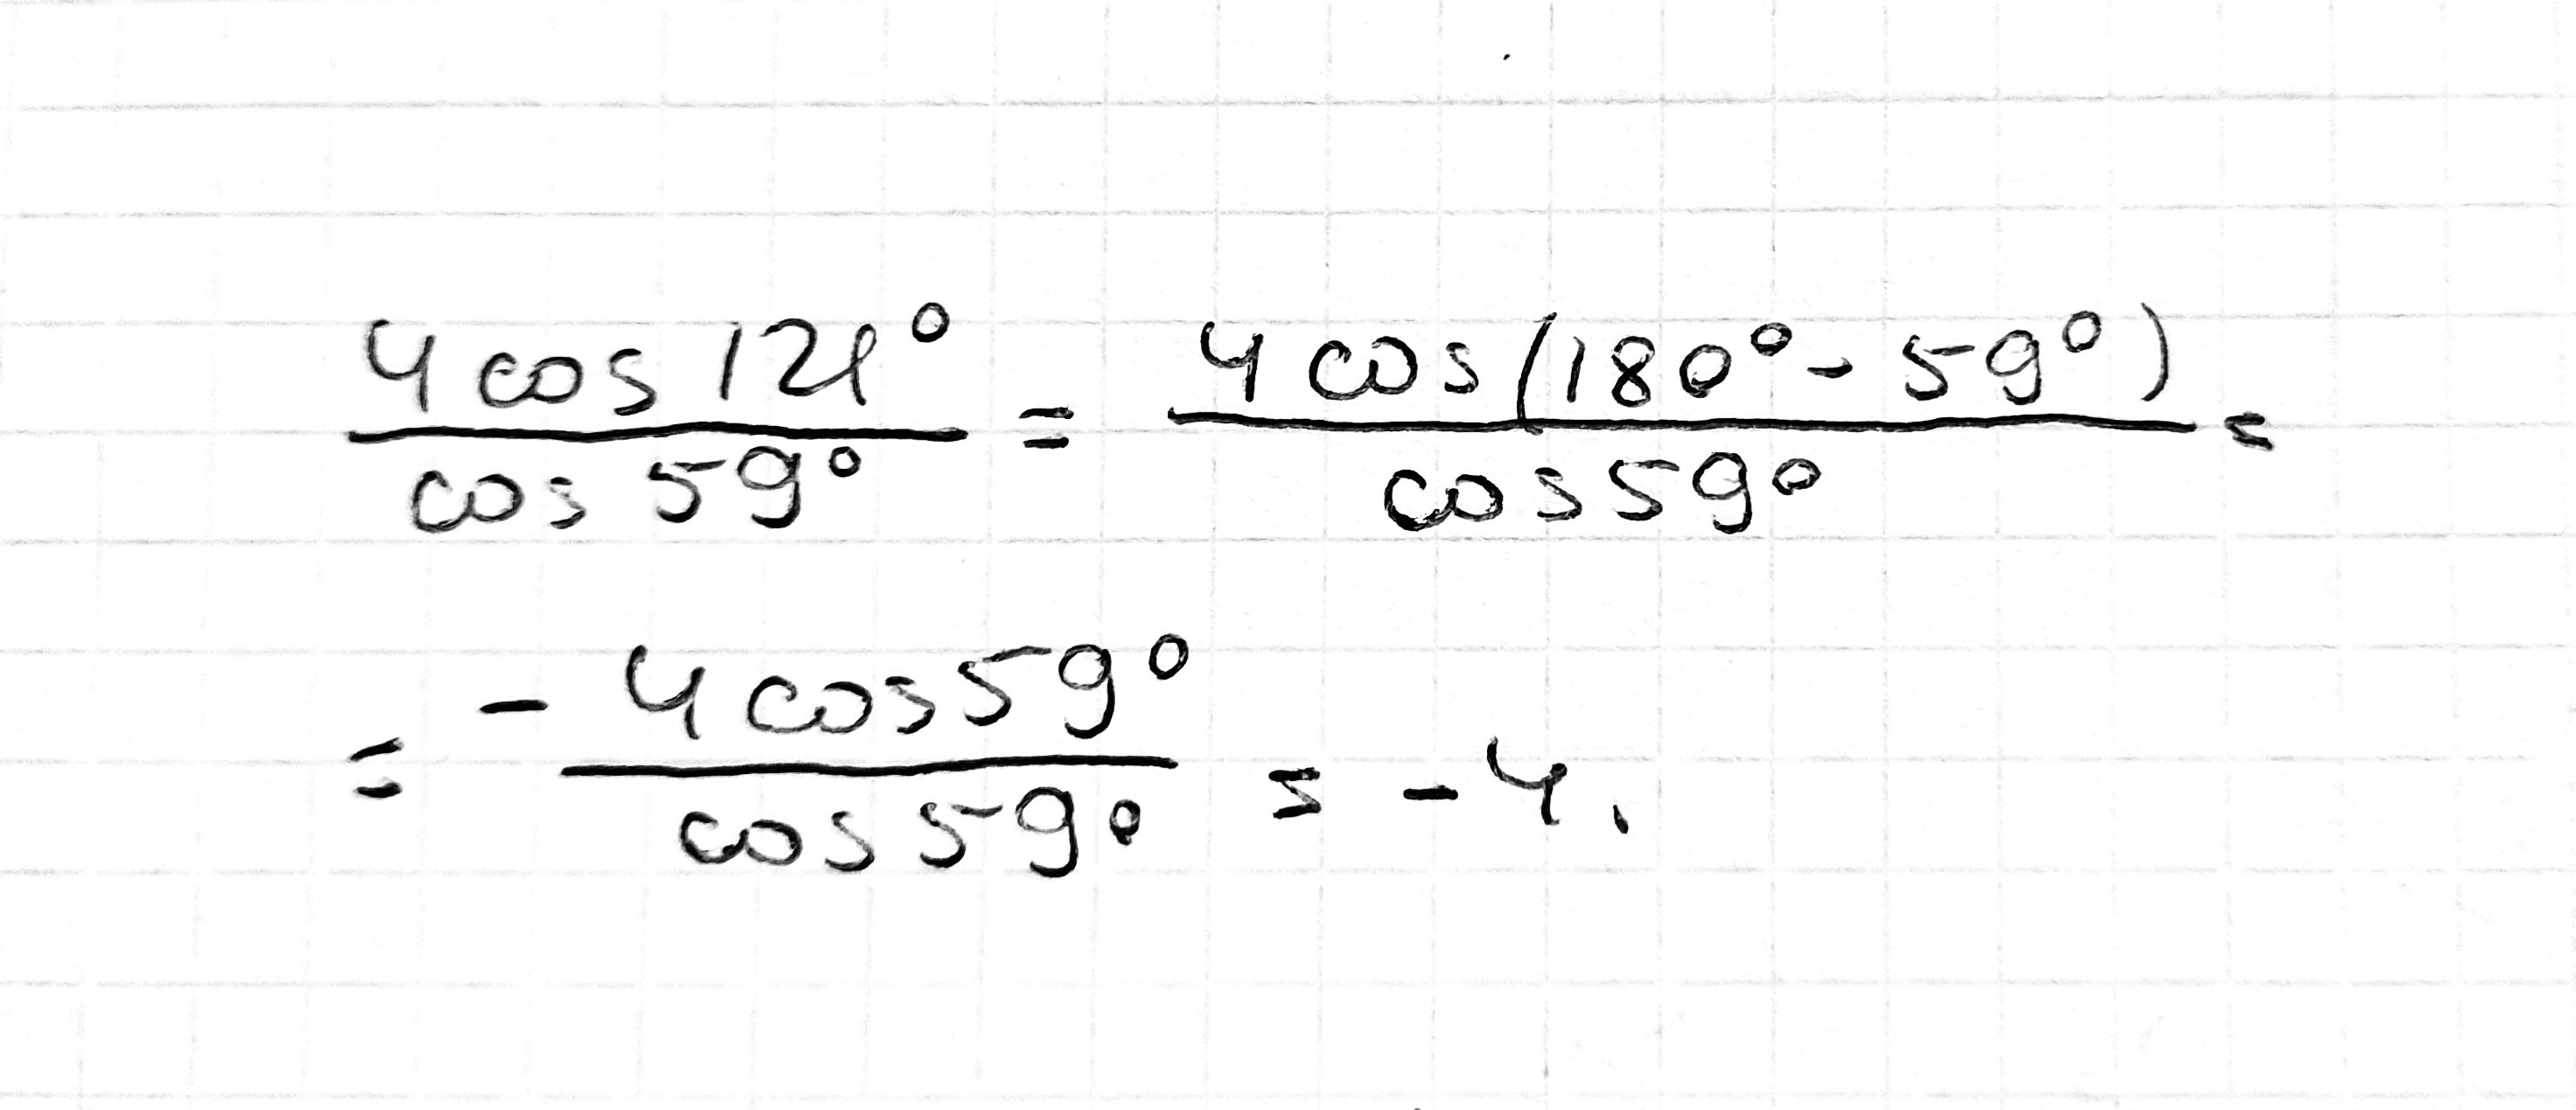 4 cos 121° / cos 59° = 4 cos(180° - 59°) / cos 59° =
= -4 cos 59° / cos 59° = -4.